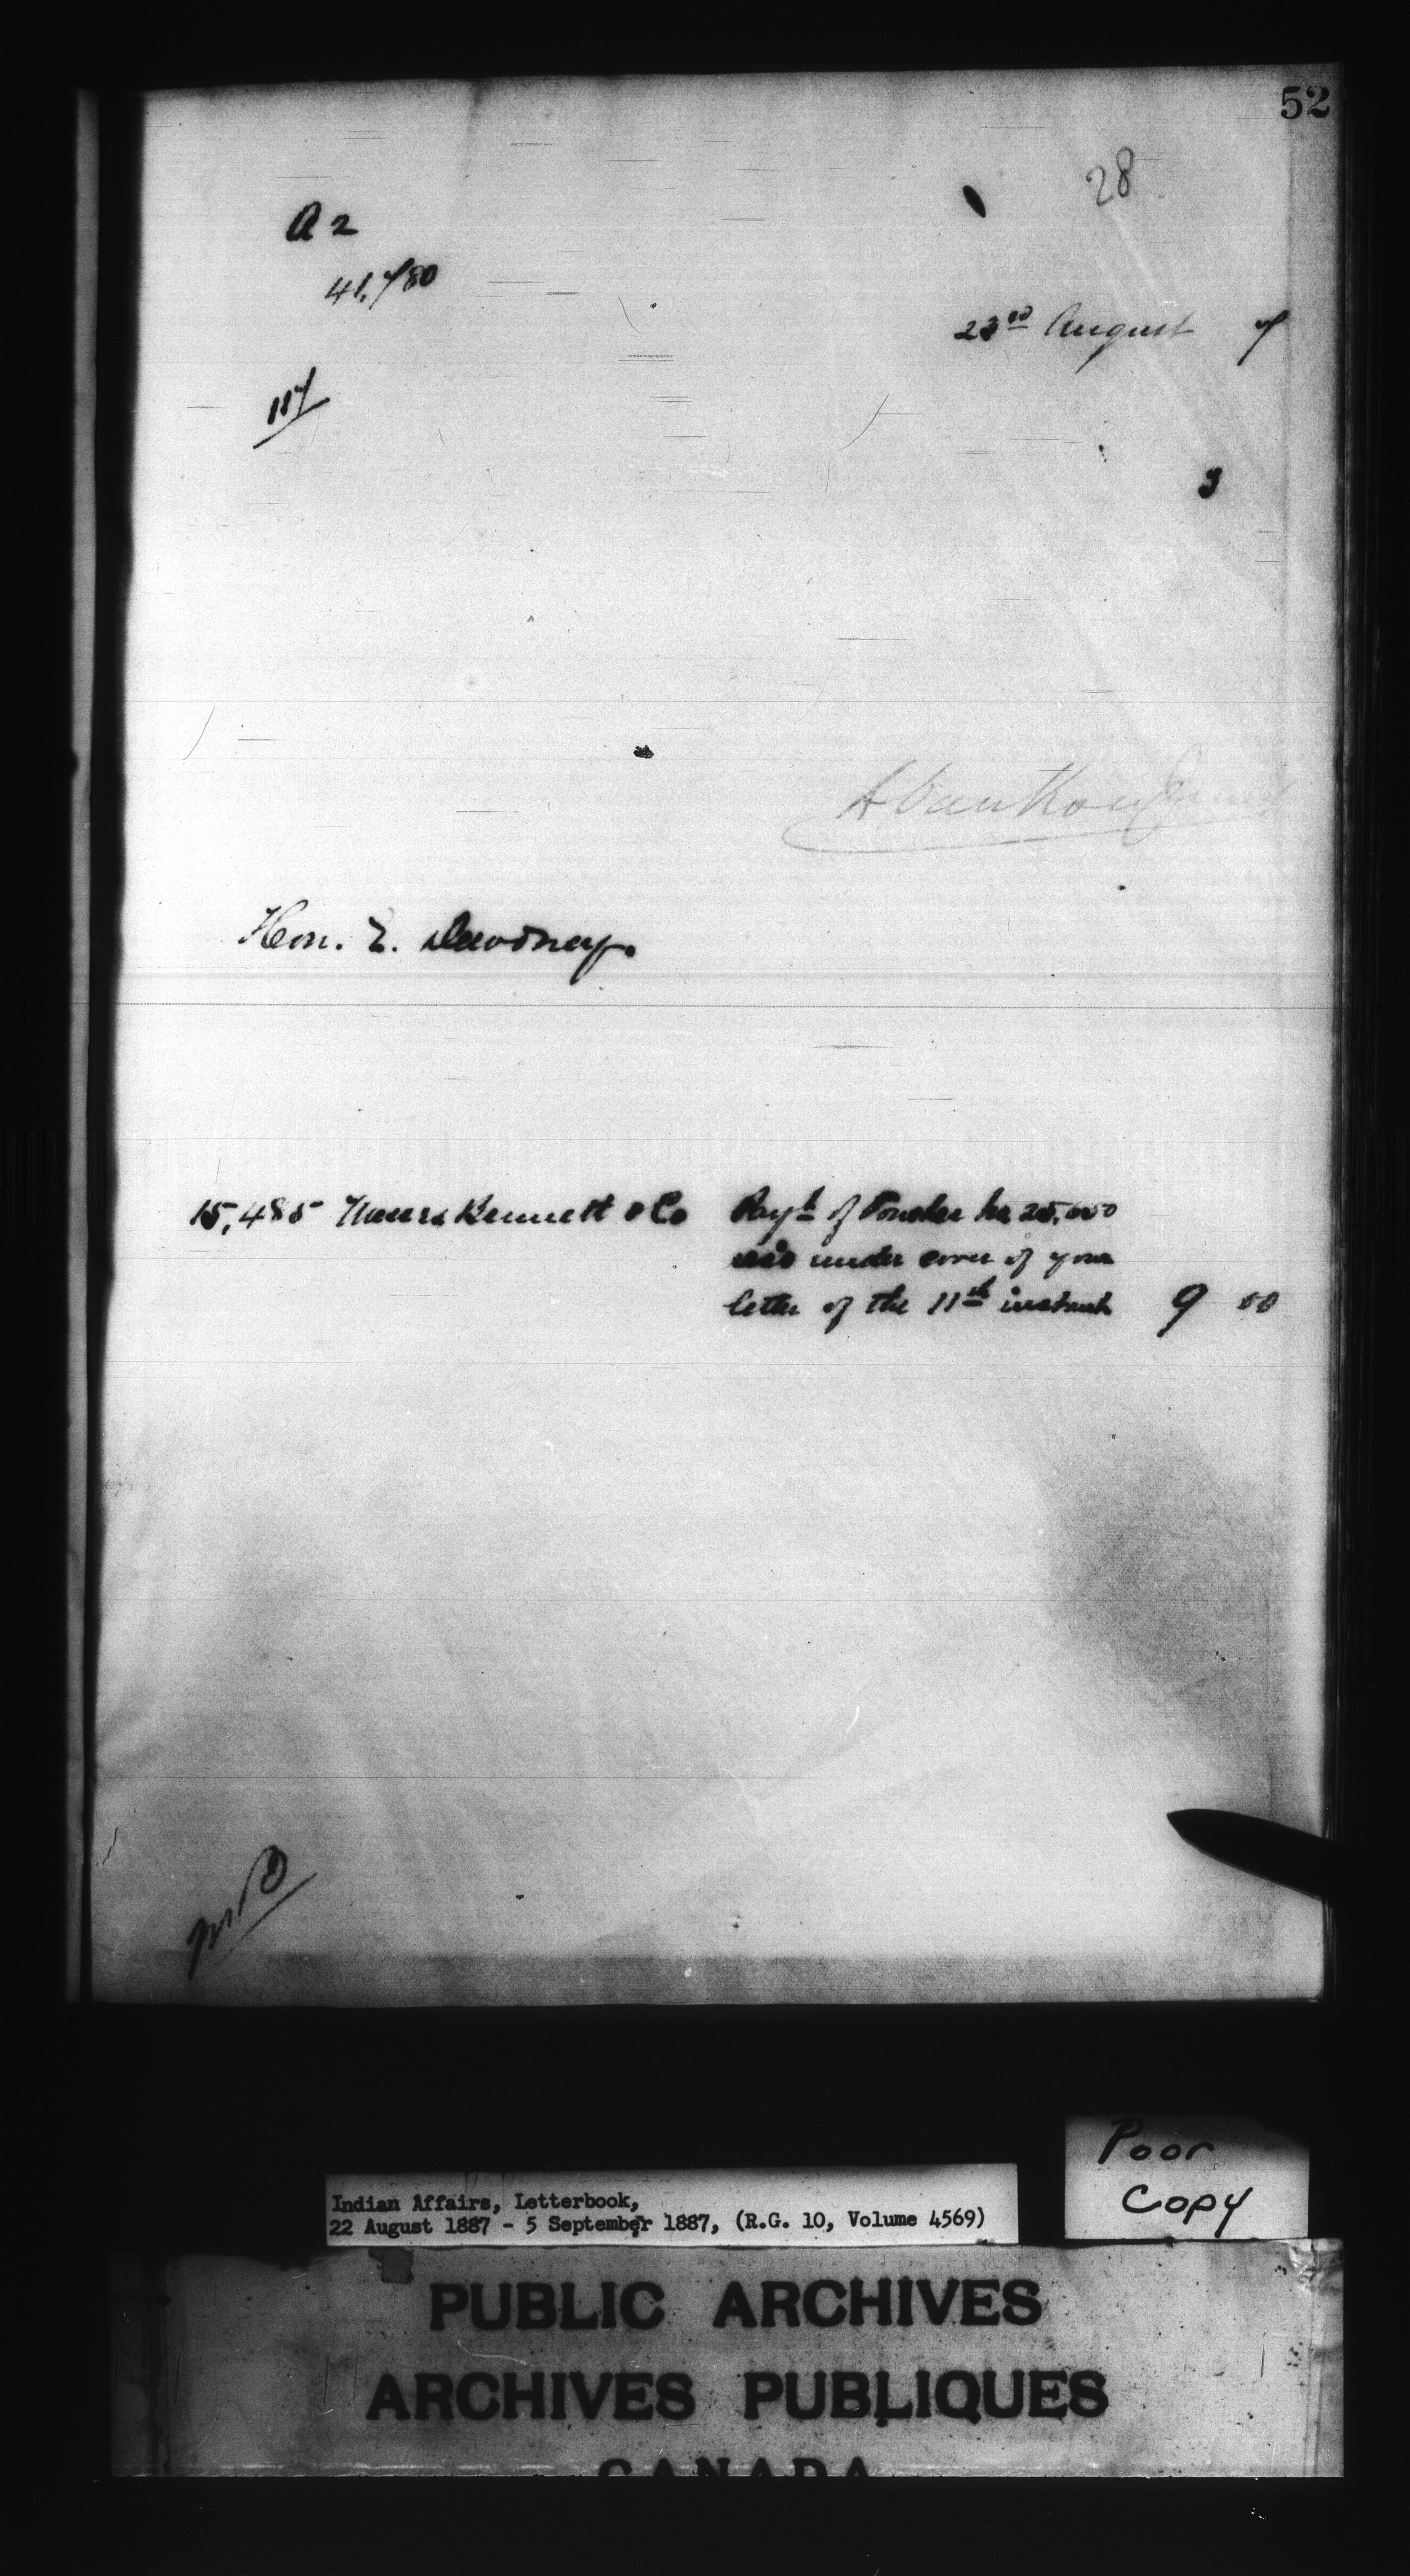 52
28
A 2
41,780
23rd August 7
117
3
A VanKoughnet
Hon. E. Dewdney.
15,485 Messrs Bennett & Co Payt of Voucher No 25,000
rec'd under cover of your
letter of the 11th instant 9 00
Poor
Copy
Indian Affairs, Letterbook,
22 August 1887 - 5 September 1887, (R.G. 10, Volume 4569)
PUBLIC ARCHIVES
ARCHIVES PUBLIQUES
CANADA